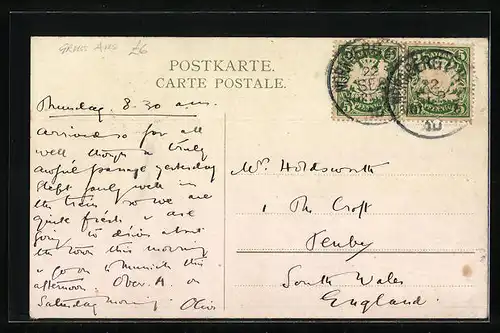 GRUSS AUS £6
POSTKARTE.
CARTE POSTALE.
NÜRNBERG
22
SE
5 5
Thursday. 8.30 am.
arrived so far all
well though a truly
awful passage yesterday
Slept fairly well in
the train so we are
quite fresh & are
going to drive about
the town this morning
& go on to Munich this
afternoon. Ober. A. on
Saturday morning. Olive
Mr Holdsworth
1 The Croft
Tenby
South Wales
England.